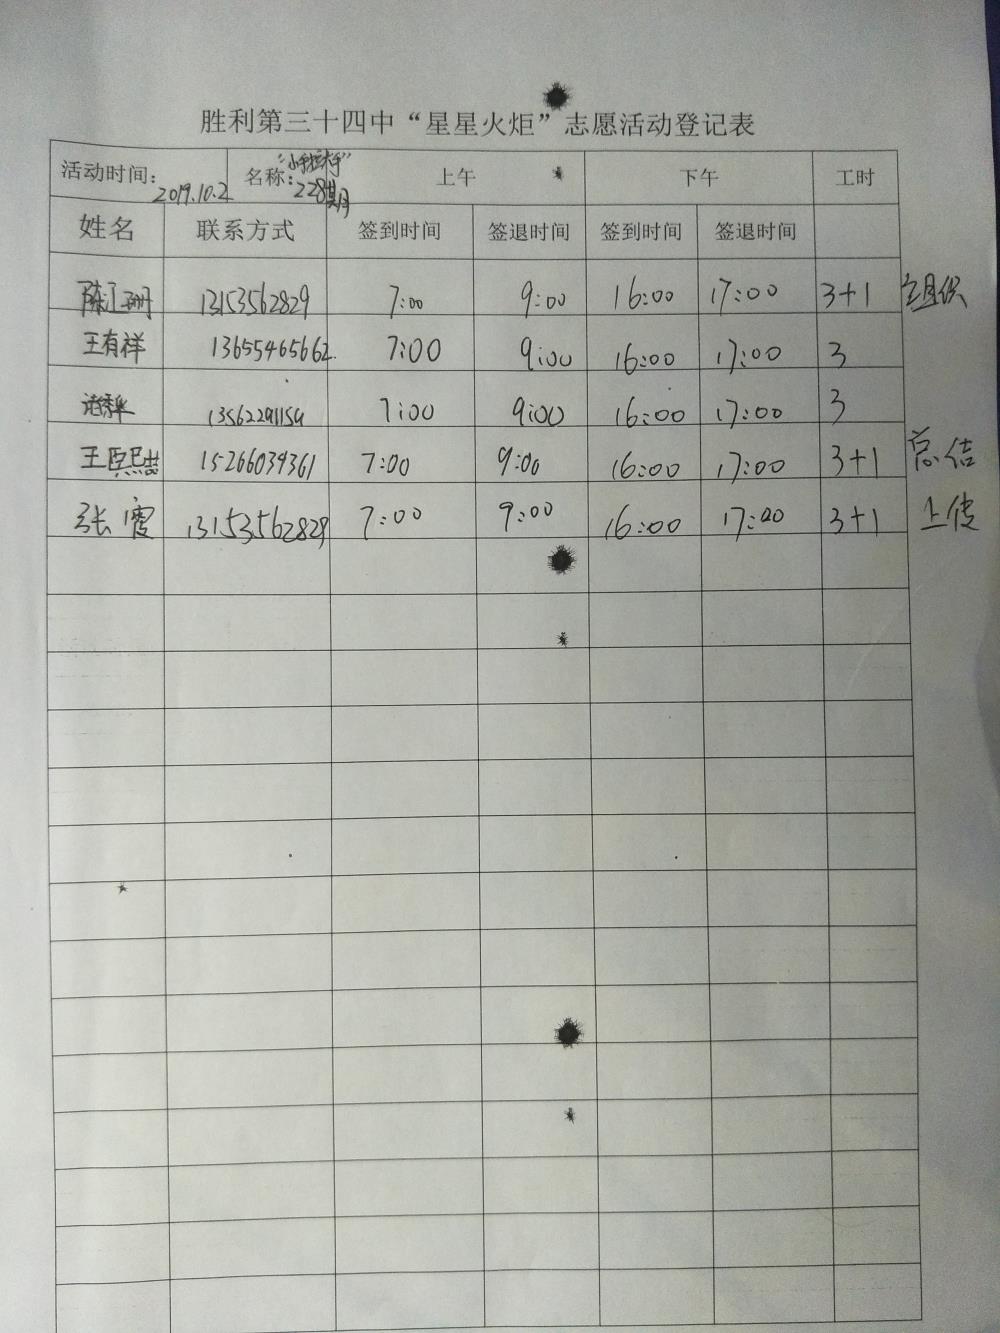 胜利第三十四中“星星火炬”志愿活动登记表
活动时间: 2019.10.2 名称: “小手拉大手” 228期 上午 下午 工时
姓名 联系方式 签到时间 签退时间 签到时间 签退时间
13153562829 7:00 9:00 16:00 17:00 3+1 组织
王有祥 13655465662 7:00 9:00 16:00 17:00 3
13562291159 7:00 9:00 16:00 17:00 3
王熙喆 15266034361 7:00 9:00 16:00 17:00 3+1 总结
张霞 13153562829 7:00 9:00 16:00 17:00 3+1 上传